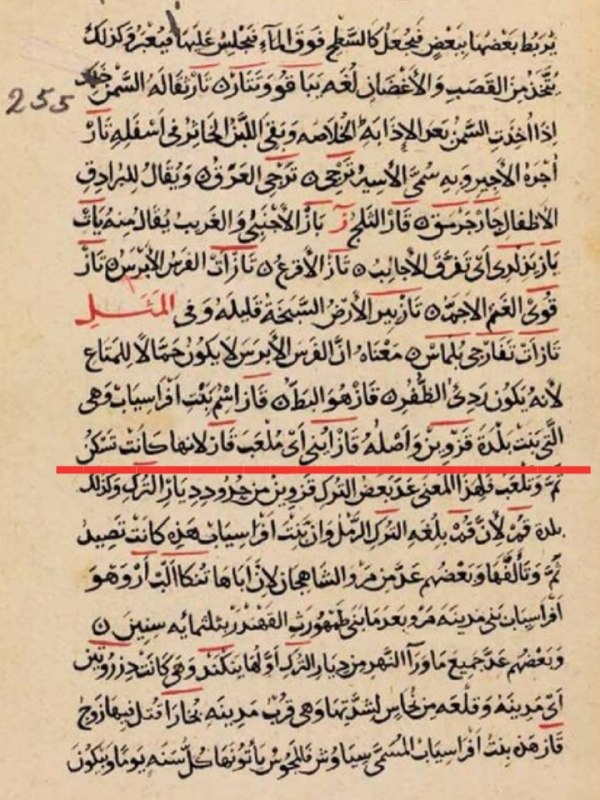 يربط بعضها ببعض فيجعل كالسطح فوق الماء فيجلس عليها فيعبر وكذلك
يتخذ من القصب والأغصان لغة يباقو وتتار تار نقالة السمن
255
اذا اخذت السمن بعد الاذابة الخلاصه وبقى اللبن الخاثر فى اسفله تار
اجرة الأجير وبه سمى الأسير ترجى ترجى العرق ويقال للبرادق
الاظفال جاز جرسق قاز الثلج ز باز الأجنبي والغريب يقال منه يات
باز بزلرى اى تفرق الأجانب تاز الأقرع تاز ات الفرس الأبرس تاز
قوى الغنم الاجم تاز يير الأرض السبخة قليله وفى المثل
تاز ات تفارجى بلماس معناه ان الفرس الأبرس لا يكون حمالا للمتاع
لانه يكون ردئ الظفر قاز هو البط قاز اسم بنت افراسياب وهى
التى بنت بلدة قزوين واصله قاز اينى اى ملعب قاز لانها كانت تسكن
ثم وتلعب فلهذا المعنى عد بعض الترك قزوين من حدود ديار الترك وكذلك
بلدة قم لأن قم بلغة الترك الرمل وان بنت افراسياب هذه كانت تصيد
ثم وتألفها وبعضهم عد من مرو الشاهجان لان اباها تنكا الب ار وهو
افراسياب بنى مدينة مرو بعد ما بنى طهمورث القهندر بثلثمائه سنين
وبعضهم عد جميع ما وراء النهر من ديار الترك اولها ينكند وهى كانت دزرويين
اى مدينة وقلعه من نحاس لشدتها وهى قرب مدينه بخارا قتل فيها زوج
قاز هذه بنت افراسياب المسمى سياوش فالمجوس يأتونها كل سنه يوما ويبكون